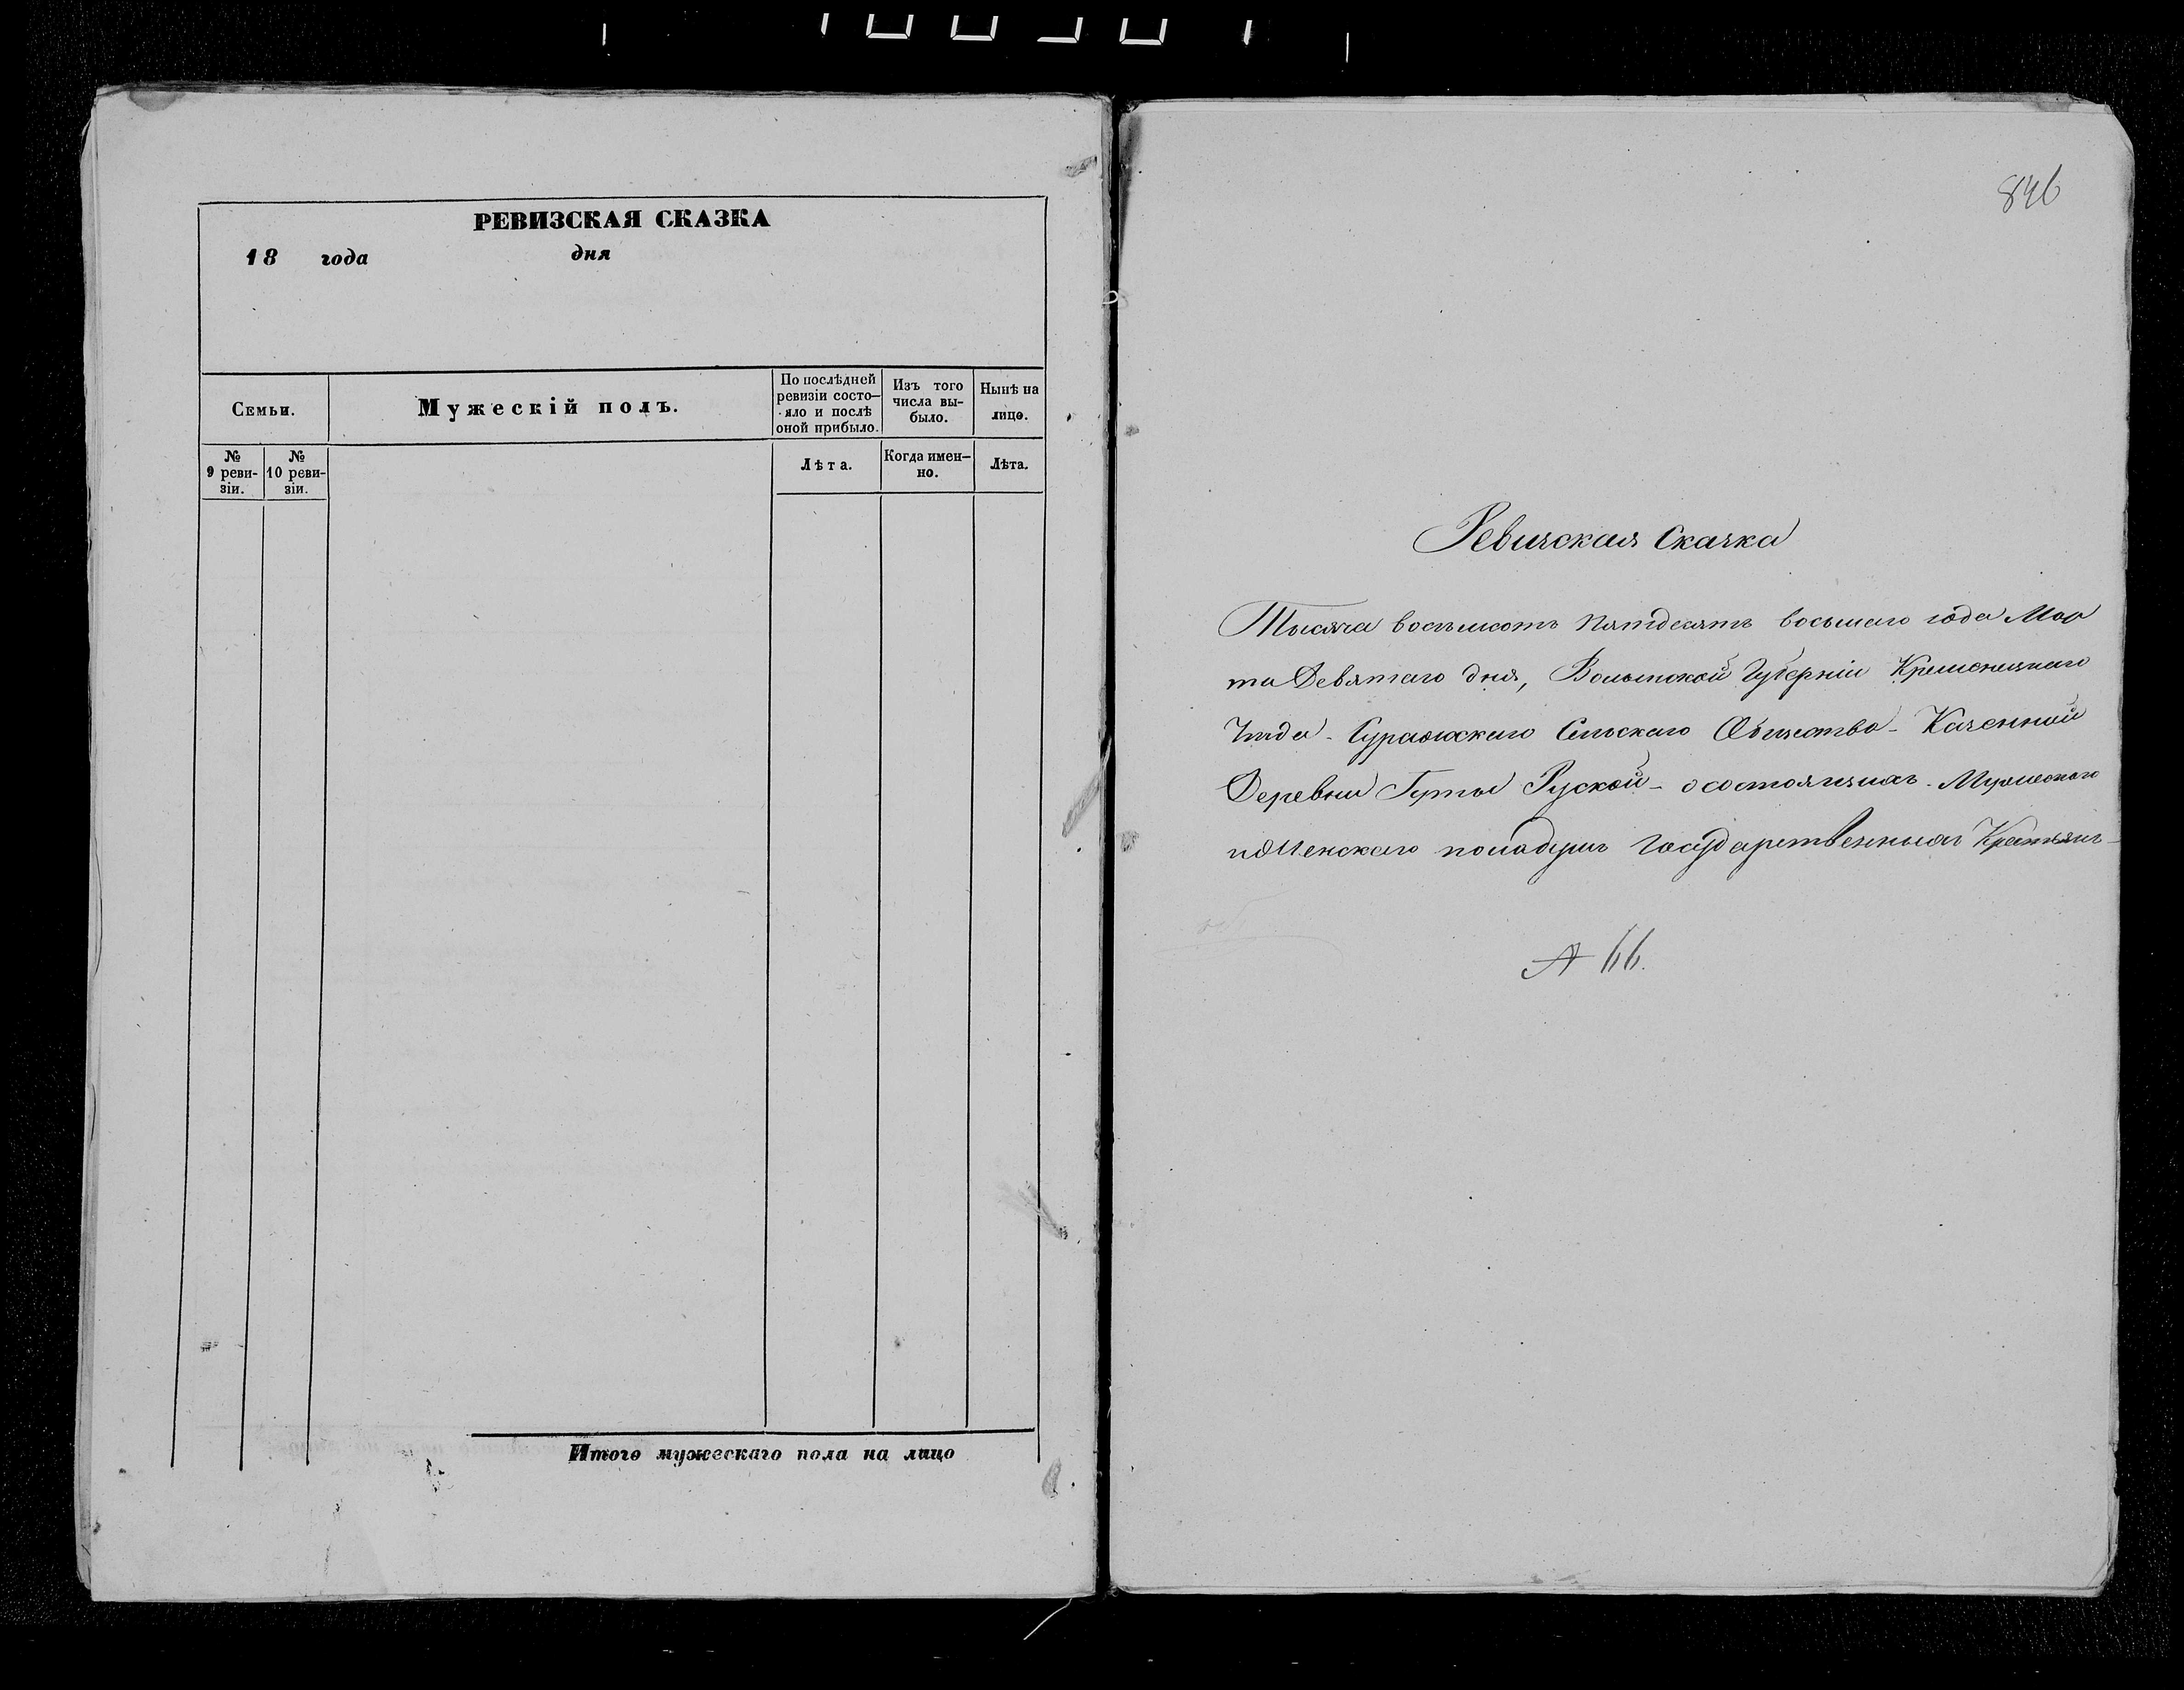 РЕВИЗСКАЯ СКАЗКА
18 года дня
Семьи.
Мужескій полъ.
По послѣдней
ревизіи состо-
яло и послѣ
оной прибыло.
Изъ того
числа вы-
было.
Нынѣ на
лицо.
№
9 реви-
зіи.
№
10 реви-
зіи.
Лѣта.
Когда имен-
но.
Лѣта.
Итого мужескаго пола на лицо
846
Ревизская Сказка
Тысяча восемьсотъ пятдесятъ восьмаго года Мар
та Девятаго дня, Волынской Губерніи Кременецкаго
Уѣзда - Суражскаго Сельскаго Общества - Казенной
Деревни Гуты Руской - о состоящихъ - Мужескаго
и Женскаго пола душъ Государственныхъ Крестьянъ -
№ 66.